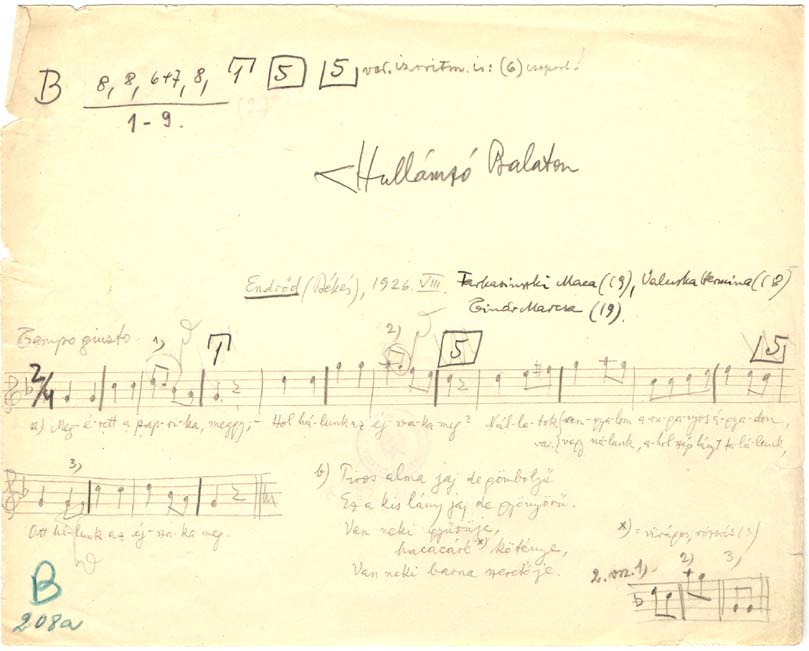 B 8, 8, 6+7, 8, 1 5 5 var. izoritm. is: (6) csoport!
1-9.
Hullámzó Balaton
Endrőd (Békés), 1926. VIII. Farkasinszki Maca (19), Valuska Hermina (18)
Tímár Marcsa (19).
Tempo giusto. 1) 1 2) 5 5
2/4
a) Meg-é-rett a pap-ri-ka, meggy, - Hol há-lunk az éj-sza-ka meg? Nál-la-tok
var.) vagy nálunk, a-hol szép lányt ta-lá-lunk,
3)
Ott há-lunk az éj-sza-ka meg.
b) Piros alma jaj de gömbölyű
Ez a kis lány jaj de gyönyörű.
Van neki gyűrűje,
hacacáré x) köténye,
Van neki barna szeretője.
x) = virágos, rózsás (?)
2. vsz. 1) 2) 3)
B
208a